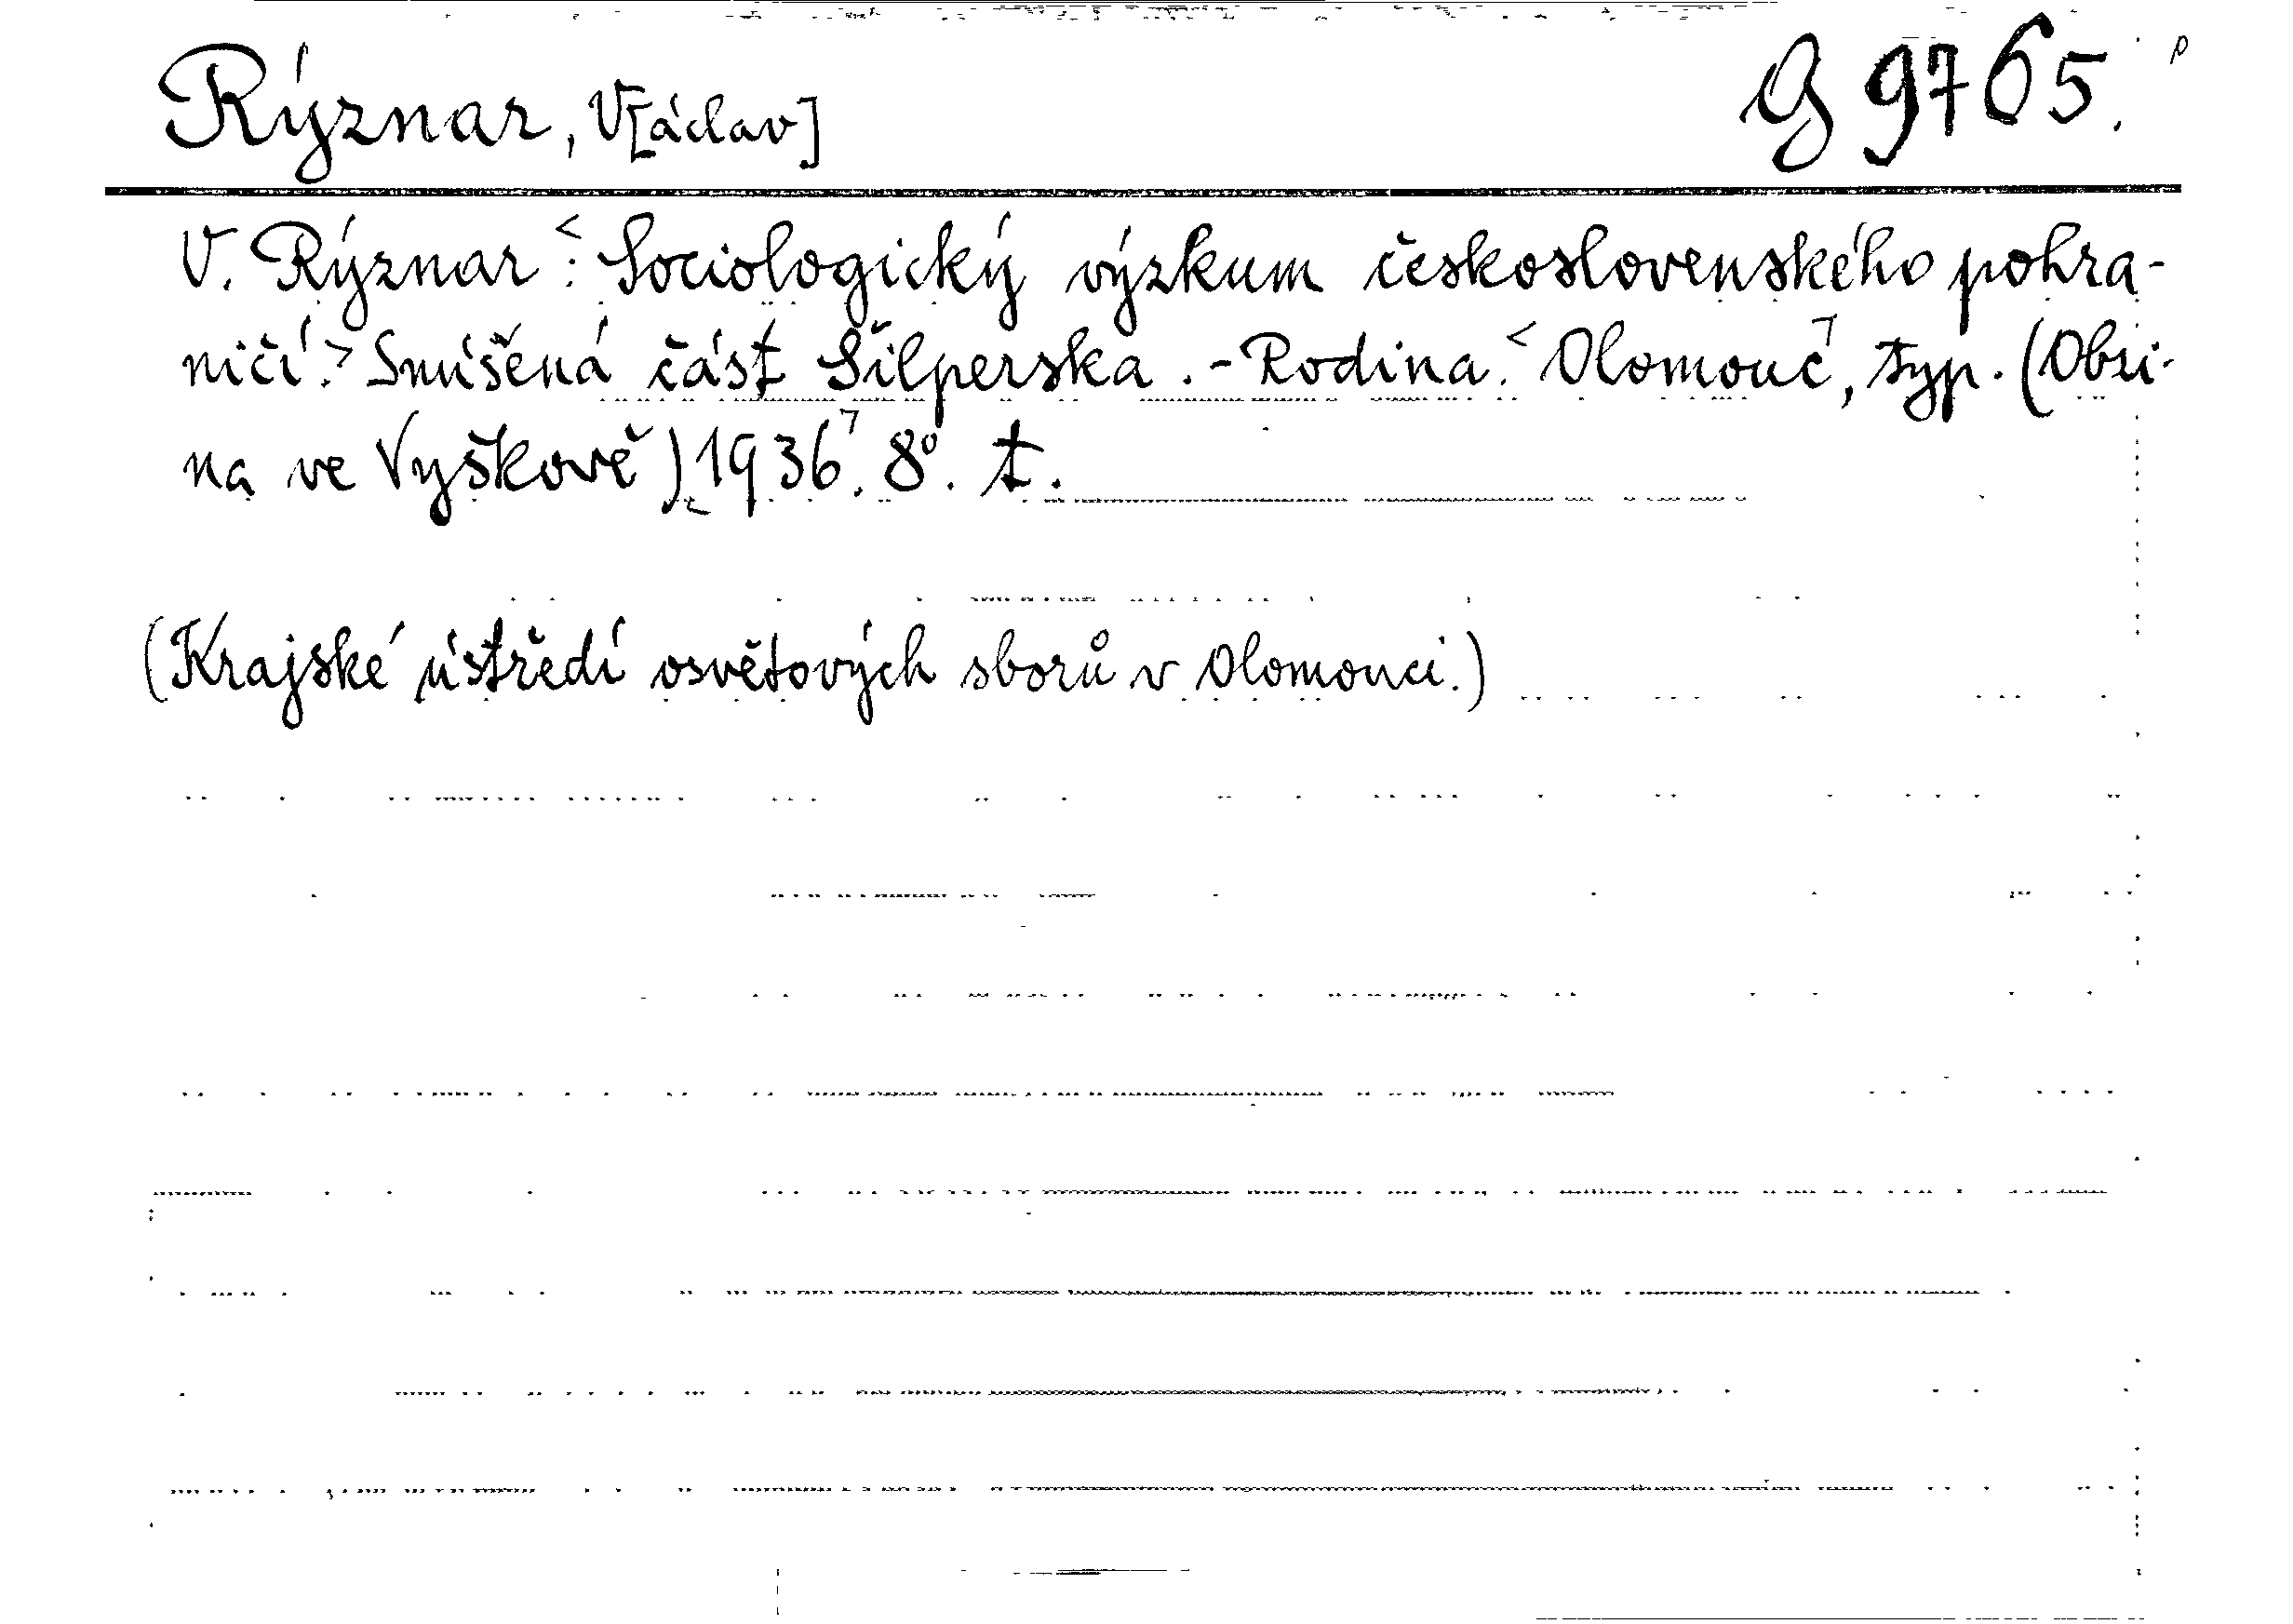 Rýznar, V[áclav] G 9765.
V. Rýznar: <Sociologický výzkum československého pohra-
ničí.> Smíšená část Šilperska. - Rodina. <Olomouc, typ. (Obzi-
na ve Vyškově) 1936. 8°. t.
(Krajské ústředí osvětových sborů v Olomouci.)